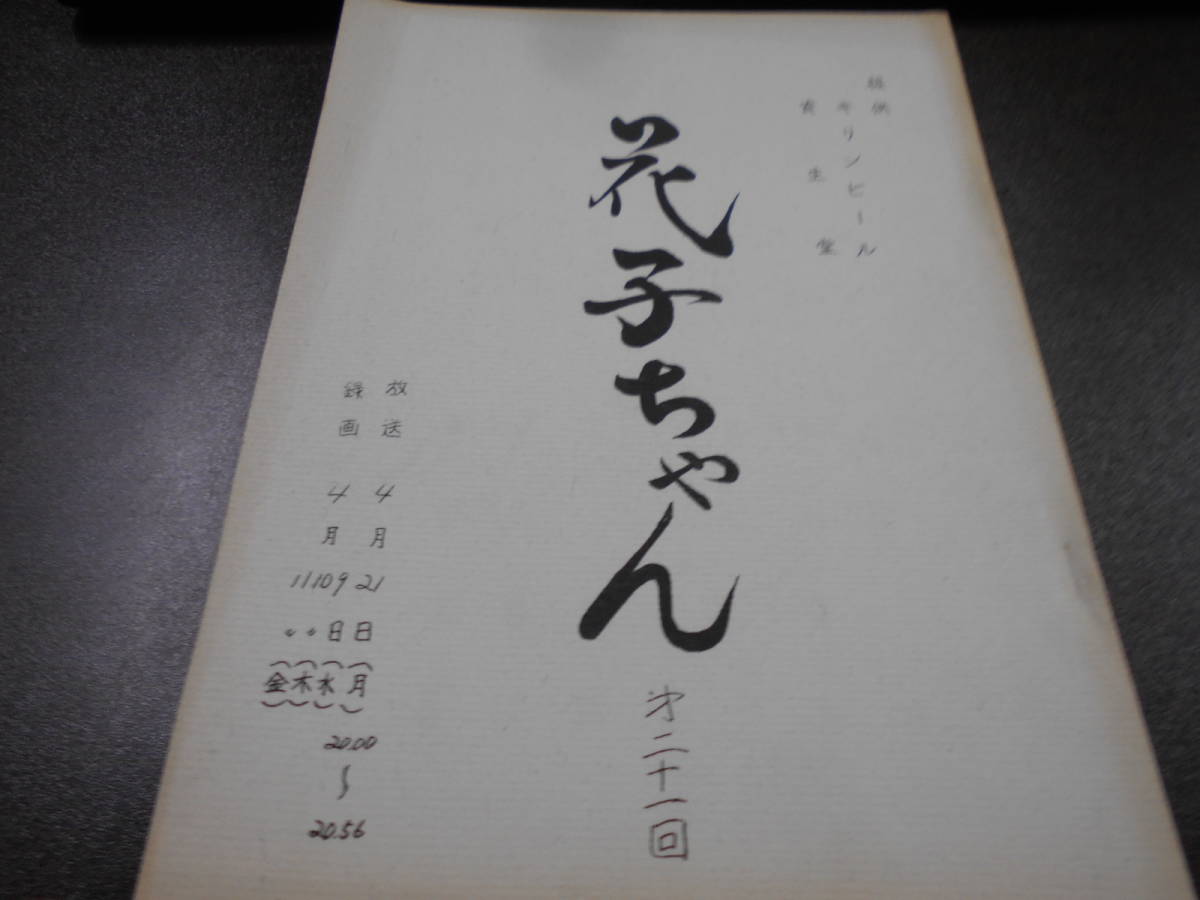 提供
キリンビール
資生堂
花子ちゃん
才二十一回
放送 4月21日(月) 20.00〜20.56
録画 4月9日(水)
10〃(木)
11〃(金)